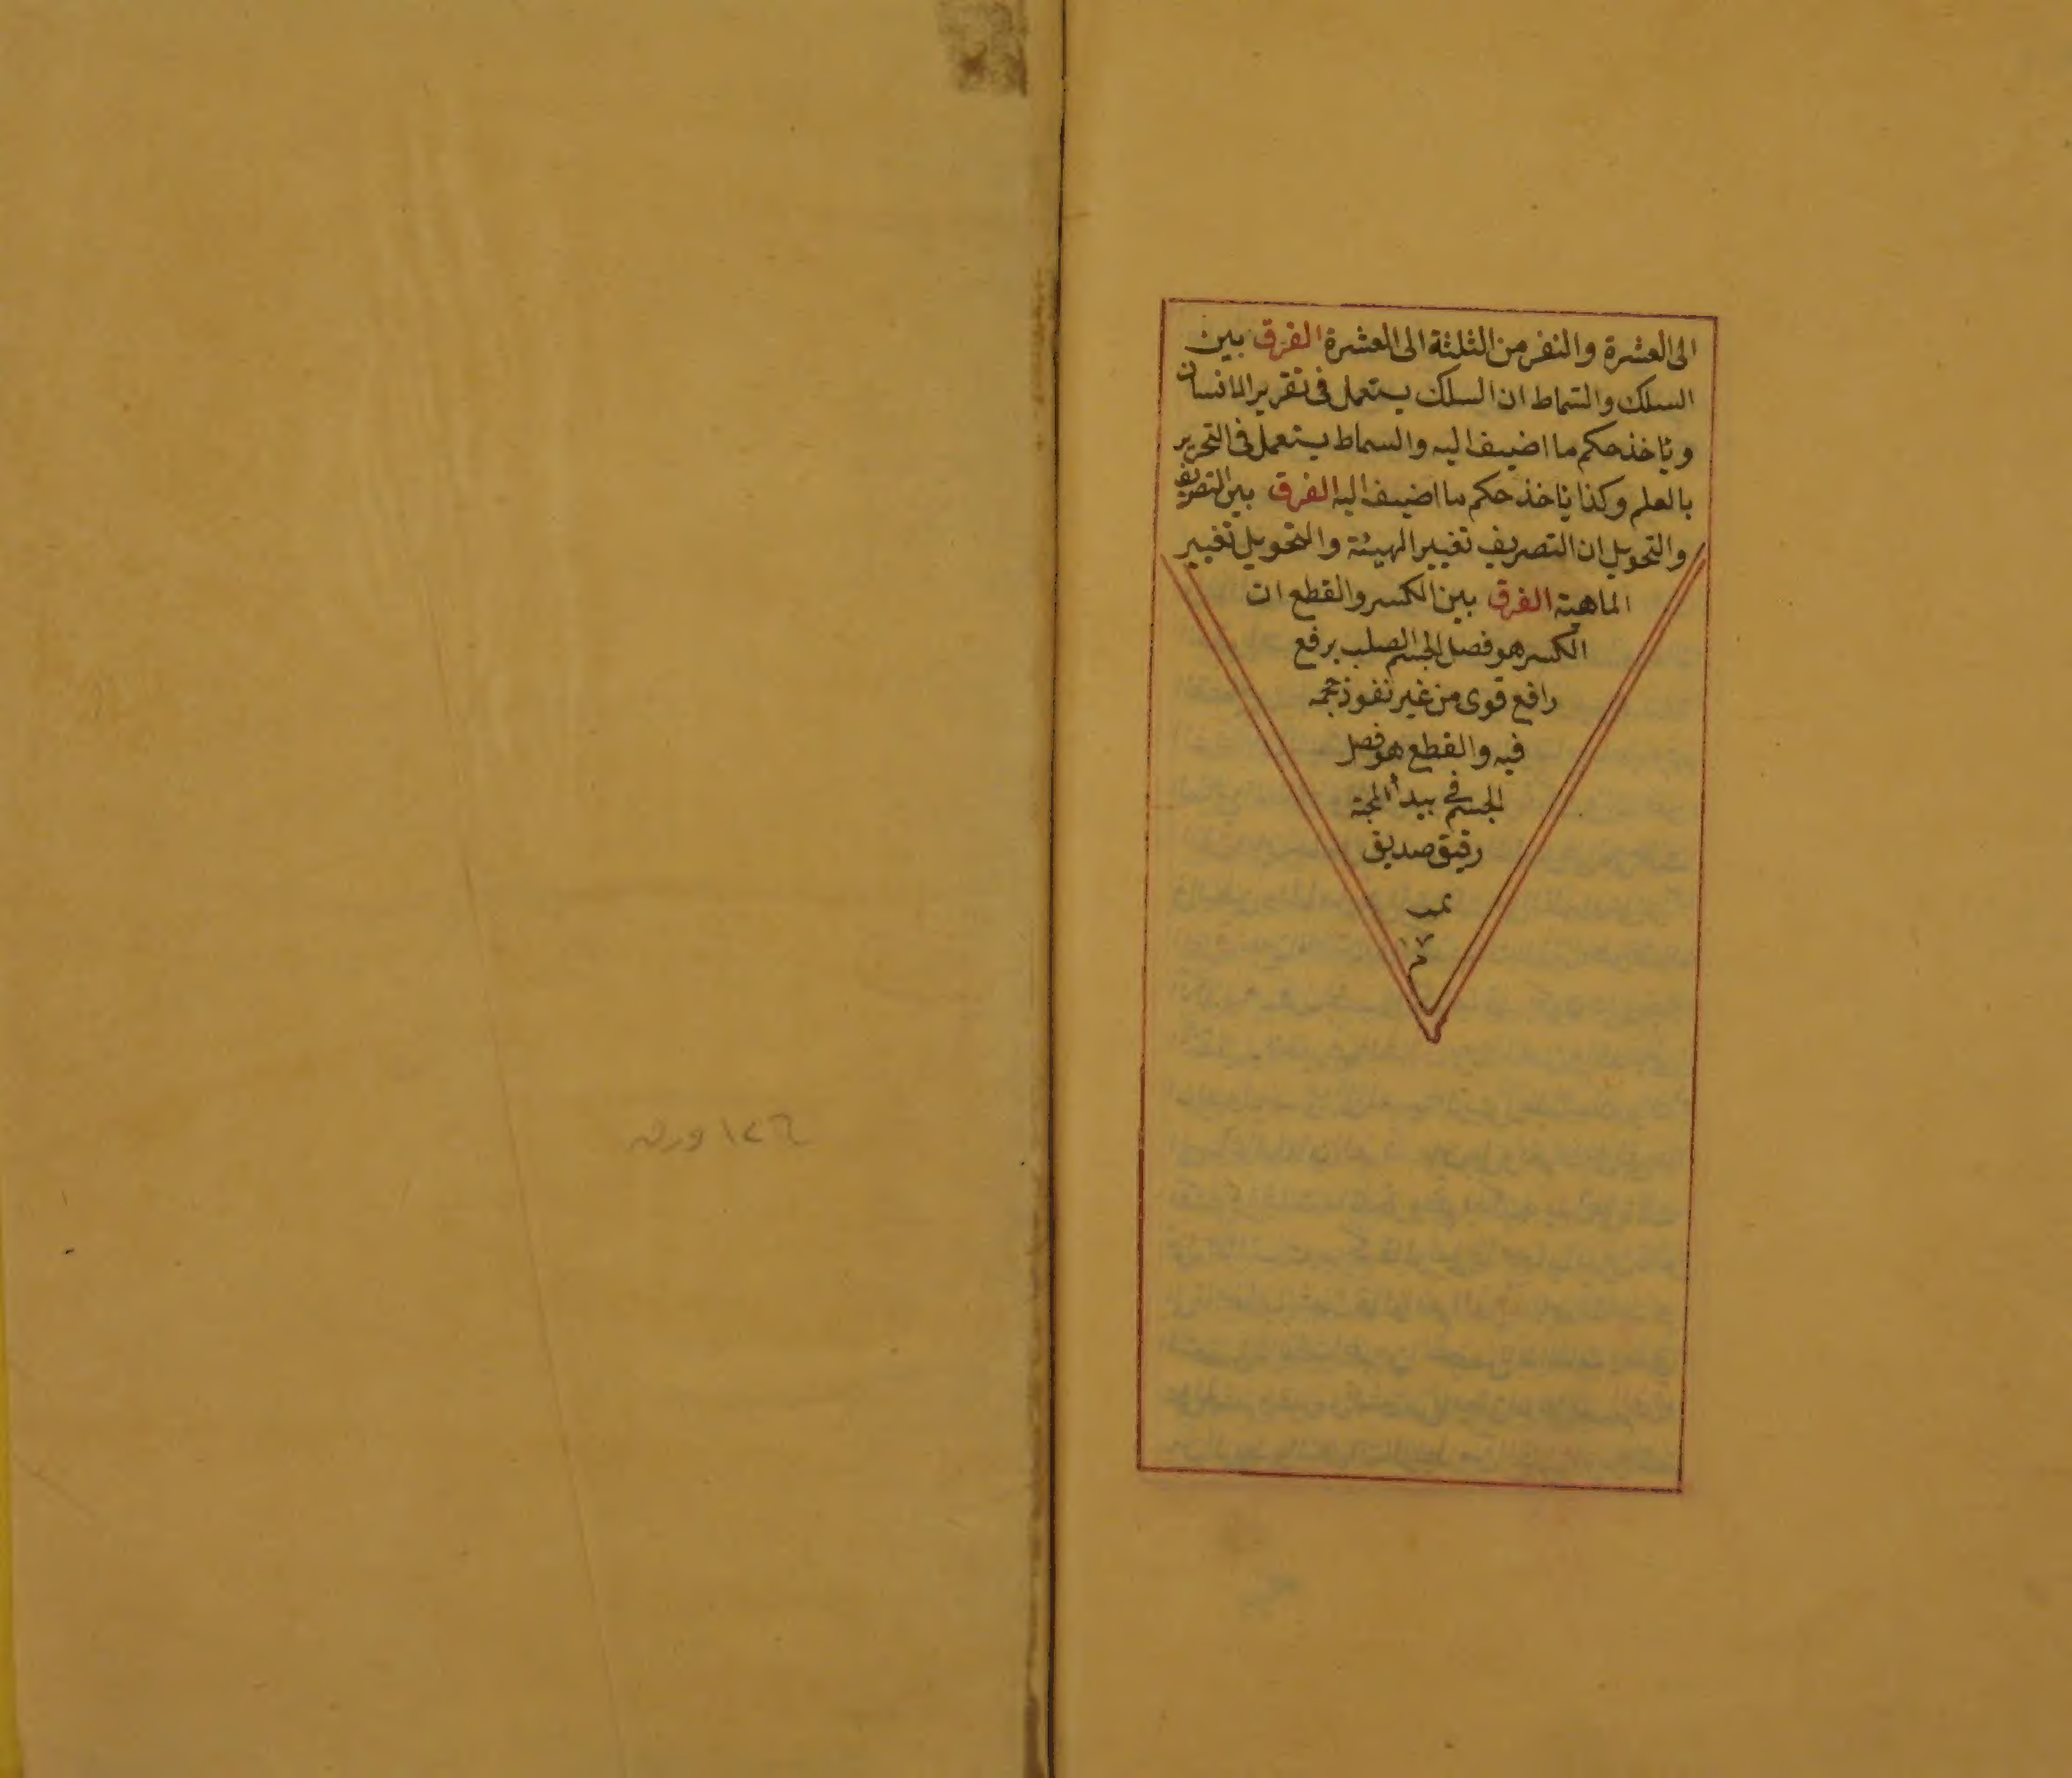 الى العشرة والنفر من الثلثة الى العشرة الفرق بين
السلك والسماط ان السلك يستعمل فى تقرير الانسان
وياخذ حكم ما اضيف اليه والسماط يستعمل فى التحرير
بالعلم وكذا ياخذ حكم ما اضيف اليه الفرق بين التصريف
والتحويل ان التصريف تغيير الهيئة والتحويل تغيير
الماهية الفرق بين الكسر والقطع ان
الكسر هو فصل الجسم الصلب برفع
رافع قوى من غير نفوذ حجمه
فيه والقطع هو فصل
الجسم فى
رقيق صديق
ورق